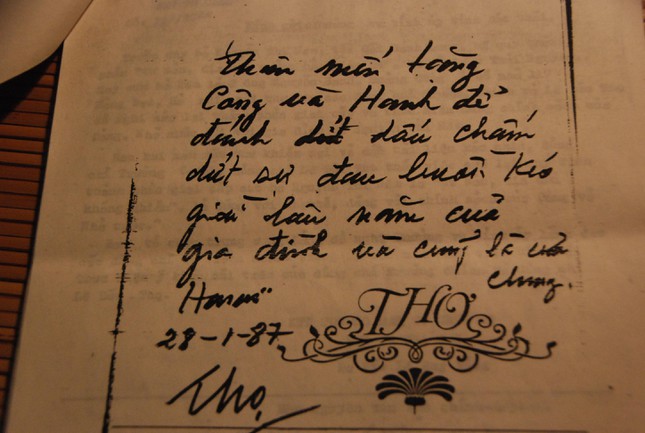 Thân mến tặng
Công và Hạnh để
đánh dấu chấm
dứt sự đau buồn kéo
dài lâu năm của
gia đình và cũng là của
chung.
28-1-87
THƠ
Thọ